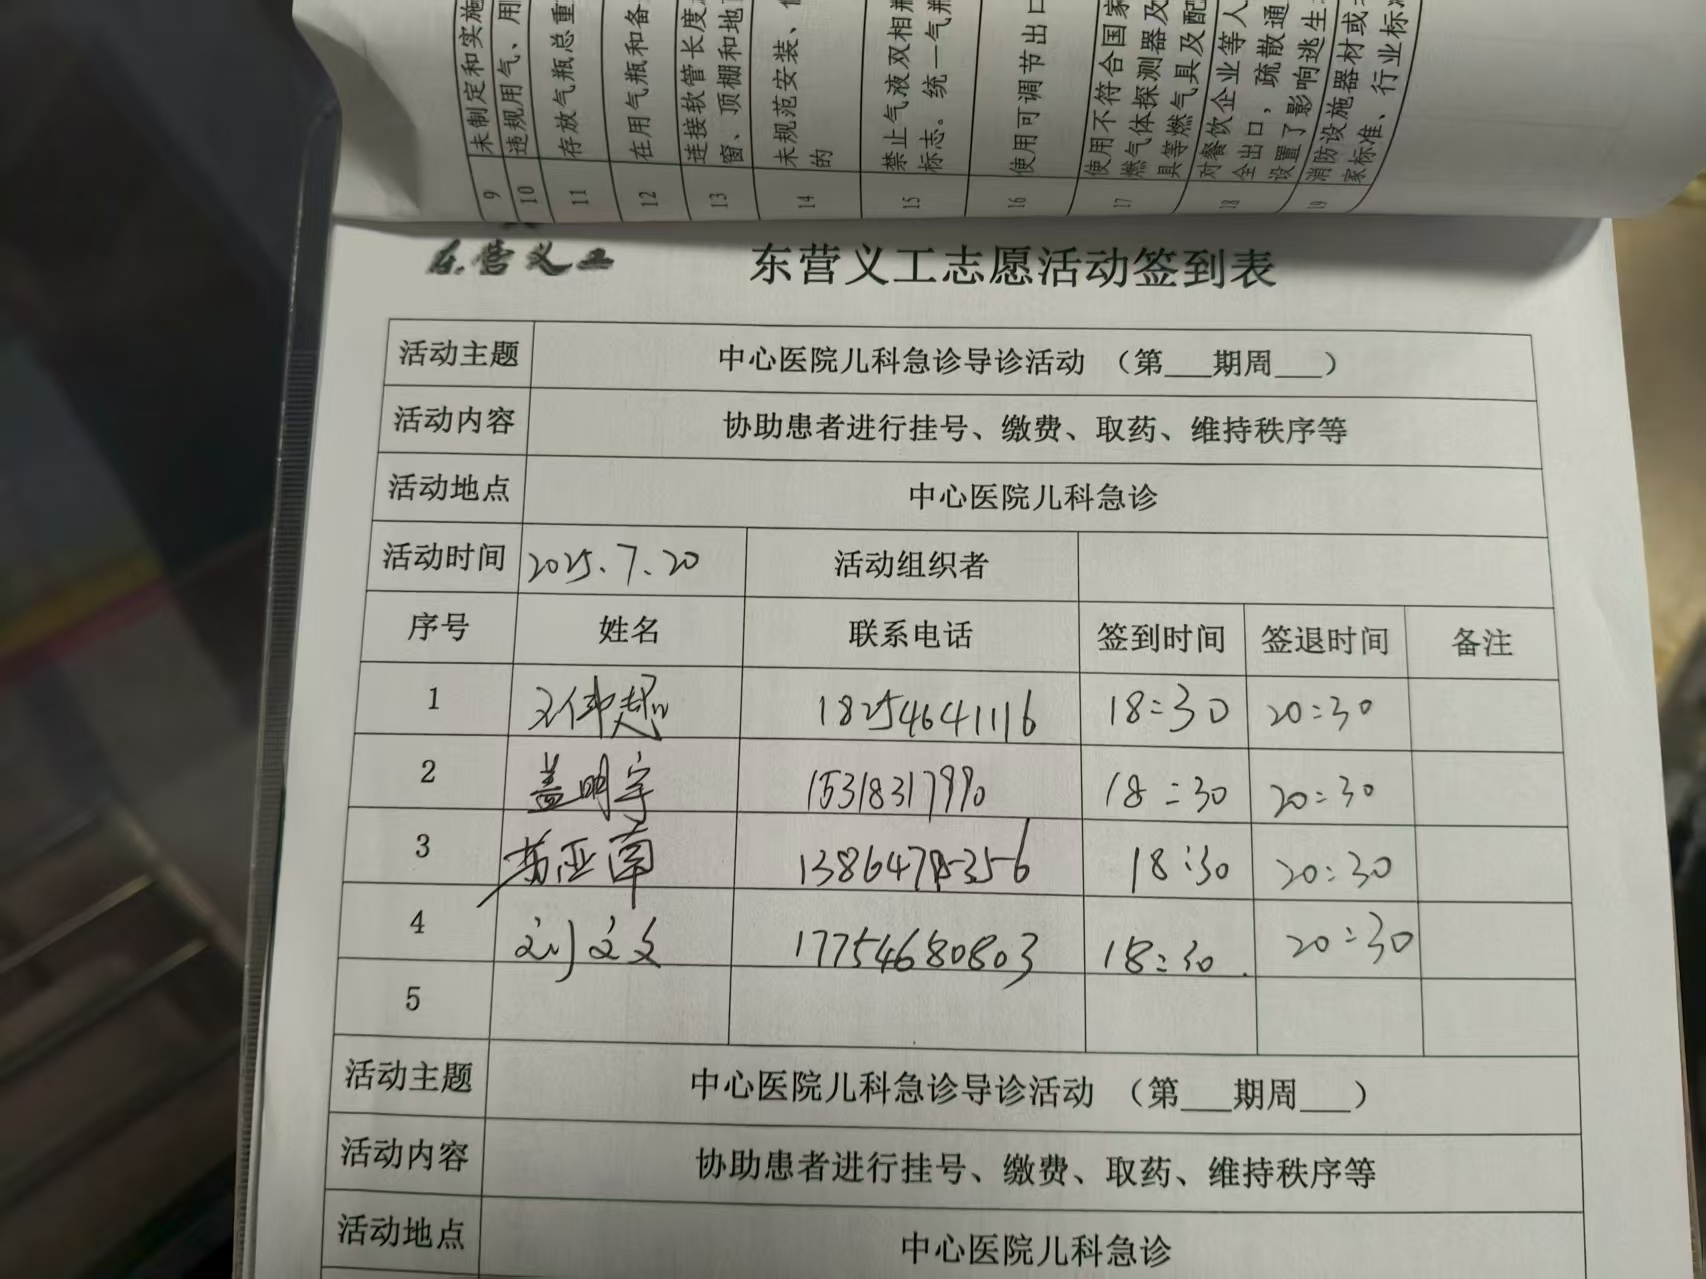 9 未制定和实施
10 违规用气、用
11 存放气瓶总重
12 在用气瓶和备
13 连接软管长度
窗、顶棚和地
14 未规范安装、
的
15 禁止气液双相
标志。统一气瓶
16 使用可调节出口
17 使用不符合国家
燃气体探测器及
具等燃气具及配
18 对餐饮企业等人
全出口，疏散通
设置了影响逃生
19 消防设施器材或
家标准、行业标准
东营义工
东营义工志愿活动签到表
活动主题 中心医院儿科急诊导诊活动 （第___期周___）
活动内容 协助患者进行挂号、缴费、取药、维持秩序等
活动地点 中心医院儿科急诊
活动时间 2025.7.20 活动组织者
序号 姓名 联系电话 签到时间 签退时间 备注
1 18254641116 18:30 20:30
2 盖明宇 15318317990 18:30 20:30
3 苏亚南 18:30 20:30
4 刘文文 17754680803 18:30 20:30
5
活动主题 中心医院儿科急诊导诊活动 （第___期周___）
活动内容 协助患者进行挂号、缴费、取药、维持秩序等
活动地点 中心医院儿科急诊